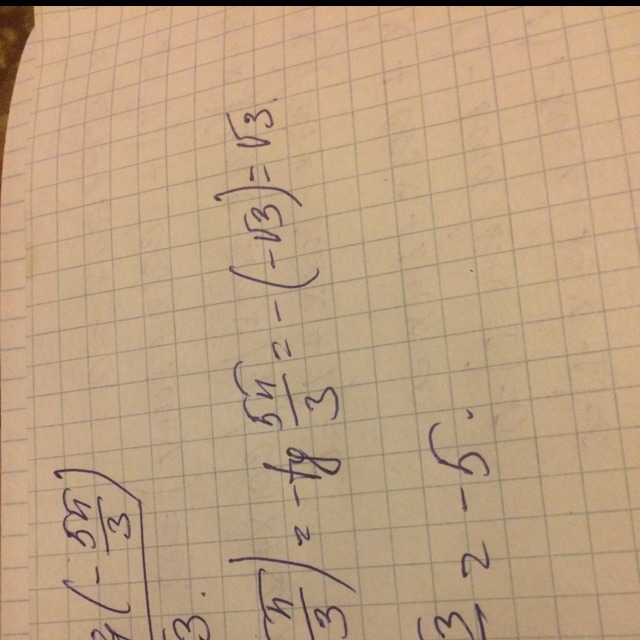 (-5π/3)
√3.
π/3) = -tg 5π/3 = -(-√3) = √3.
3 = -5.